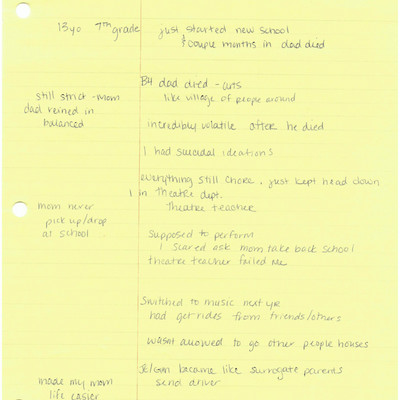 13yo 7th grade just started new school
& couple months in dad died
B4 dad died - cuts
still strict - mom like village of people around
dad reined in
balanced incredibly volatile after he died
I had suicidal ideations
everything still chore. just kept head down
1 in theatre dept.
mom never Theatre teacher
pick up/drop
at school supposed to perform
I scared ask mom take back school
theatre teacher failed me
Switched to music next yr
had get rides from friends/others
wasn't allowed to go other people houses
became like surrogate parents
made my mom send driver
life easier